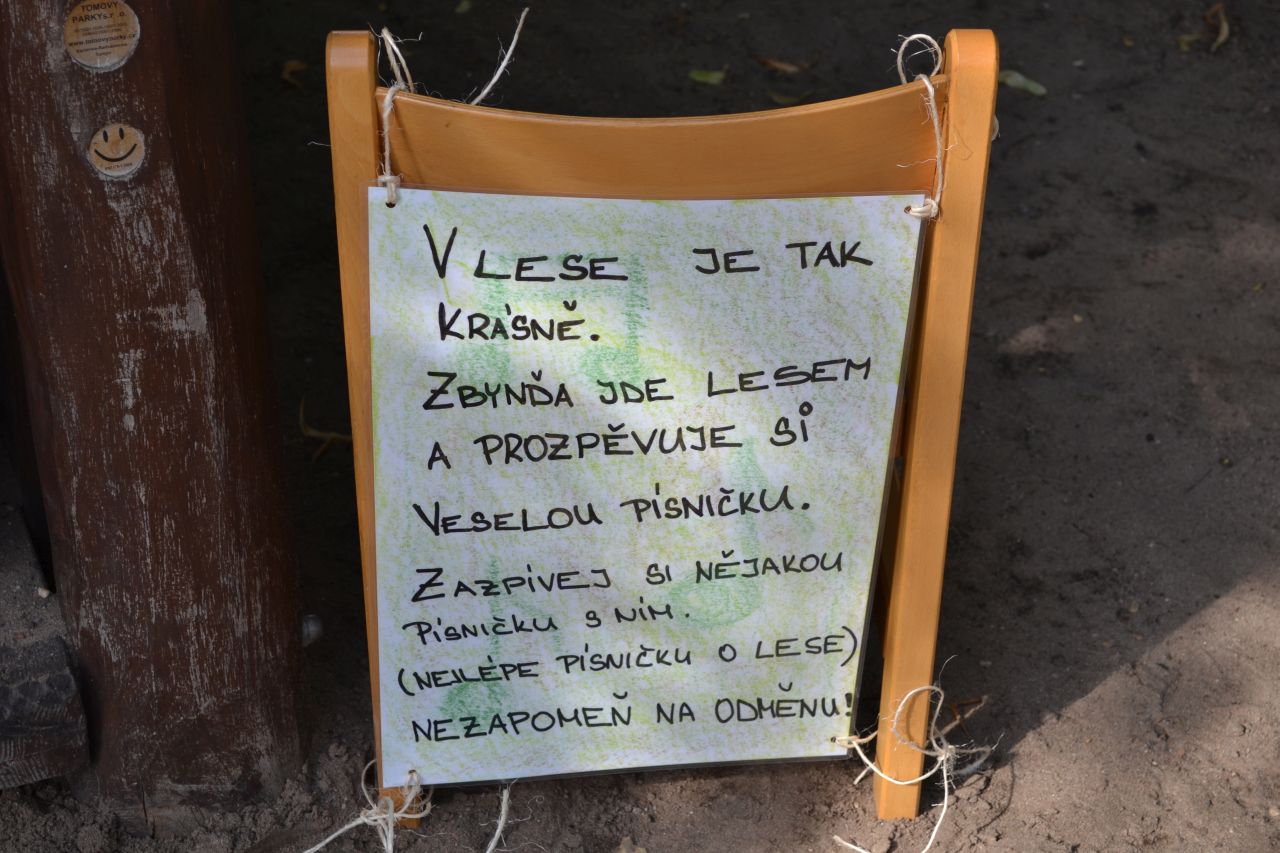 TOMOVY
PARKY s.r.o.
www.tomovyparky.cz
V LESE JE TAK
KRÁSNĚ.
ZBYNĎA JDE LESEM
A PROZPĚVUJE SI
VESELOU PÍSNIČKU.
ZAZPÍVEJ SI NĚJAKOU
PÍSNIČKU S NÍM.
(NEJLÉPE PÍSNIČKU O LESE)
NEZAPOMEŇ NA ODMĚNU!